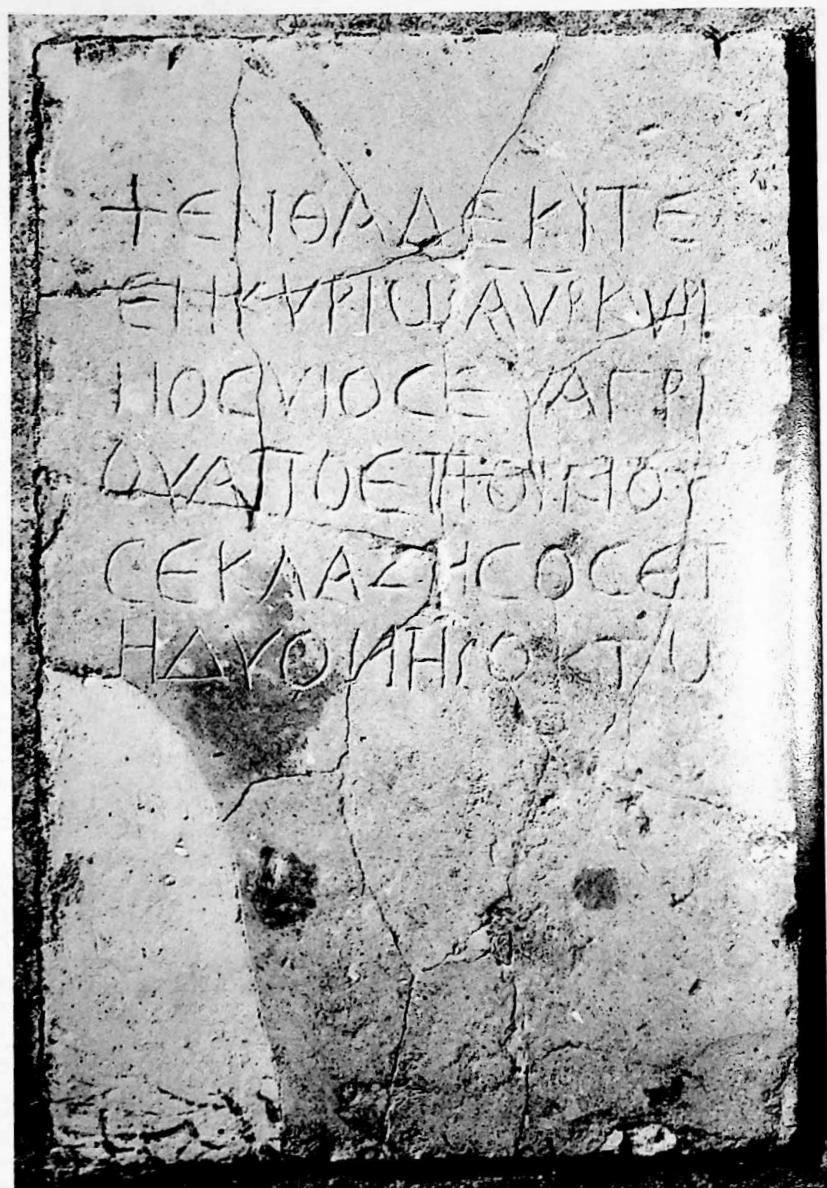 +ΕΝΘΑΔΕΚΙΤΕ
ΕΝΚΥΡΙΩΑΥΡΚΥΡΙ
ΝΟϹΥΙΟϹΕΥΑΓΡΙ
ΟΥΑΠΟΕΠΟΙΚΙΟΥ
ϹΕΚΛΑΖΗϹΟϹΕΤ
ΗΔΥΟ ΟΚΤΩ